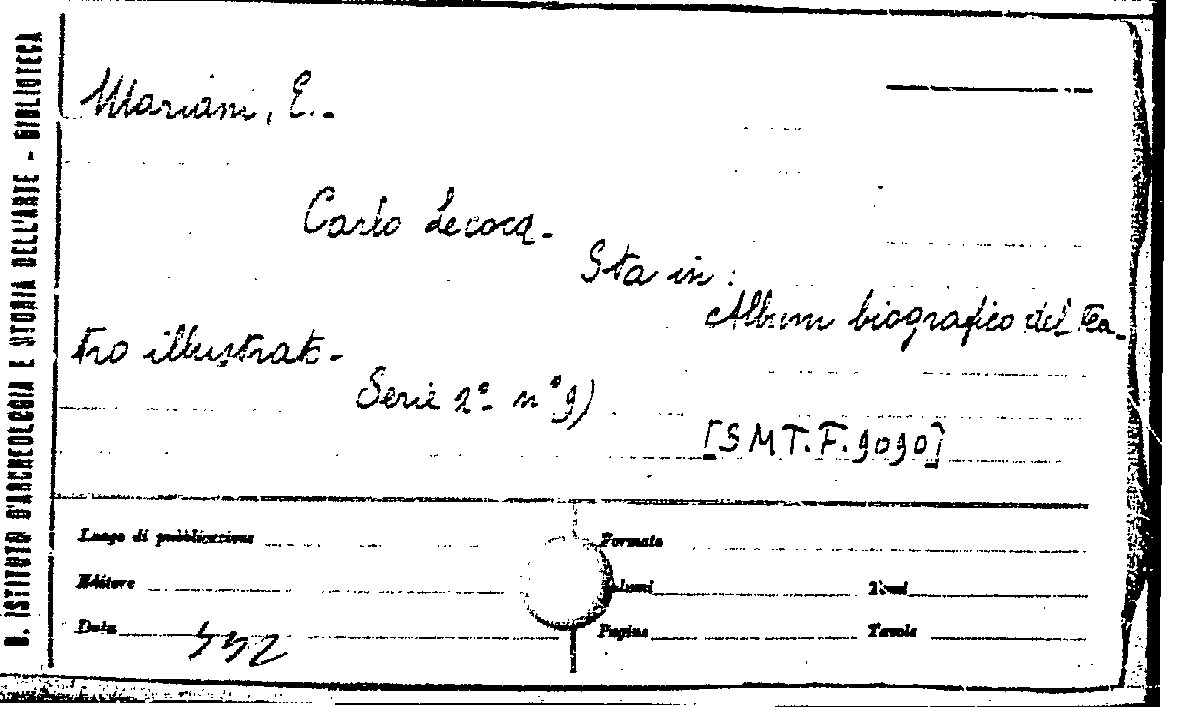 R. ISTITUTO D'ARCHEOLOGIA E STORIA DELL'ARTE - BIBLIOTECA
Mariani, E. -
Carlo Lecocq. -
Sta in :
Album biografico del tea-
tro illustrato -
Serie 2ª - n° 9)
[S M T. F. 9090]
Luogo di pubblicazione
Formato
Editore
Volumi
Tomi
Data
Pagine
Tavole